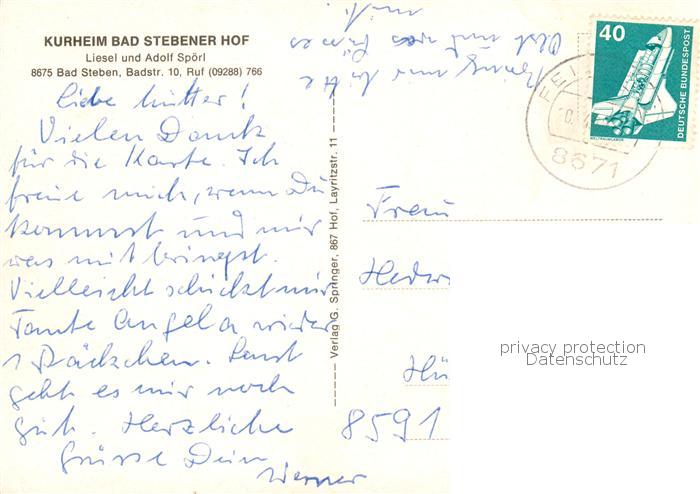 KURHEIM BAD STEBENER HOF
Liesel und Adolf Spörl
8675 Bad Steben, Badstr. 10, Ruf (09288) 766
Liebe Mutter!
Vielen Dank
für die Karte. Ich
freue mich, wenn Du
kommst und mir
was mitbringst.
Vielleicht schickt mir
Tante Angela wieder
1 Päckchen. Sonst
geht es mir noch
gut. Herzliche
Grüsse Dein
Werner
Bring mir bitte
Obst und was Süsses
mit.
Verlag G. Springer, 867 Hof, Layritzstr. 11
40
DEUTSCHE BUNDESPOST
WELTRAUMLABOR
8671
Frau
Hedw
Hü
8591
privacy protection
Datenschutz